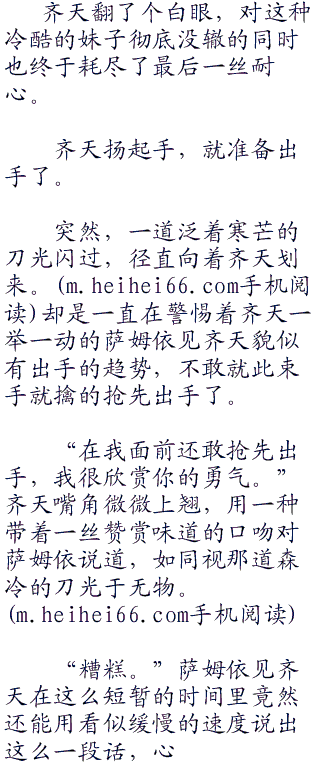 齐天翻了个白眼，对这种
冷酷的妹子彻底没辙的同时
也终于耗尽了最后一丝耐
心。
齐天扬起手，就准备出
手了。
突然，一道泛着寒芒的
刀光闪过，径直向着齐天划
来。(m.heihei66.com手机阅
读)却是一直在警惕着齐天一
举一动的萨姆依见齐天貌似
有出手的趋势，不敢就此束
手就擒的抢先出手了。
“在我面前还敢抢先出
手，我很欣赏你的勇气。”
齐天嘴角微微上翘，用一种
带着一丝赞赏味道的口吻对
萨姆依说道，如同视那道森
冷的刀光于无物。
(m.heihei66.com手机阅读)
“糟糕。”萨姆依见齐
天在这么短暂的时间里竟然
还能用看似缓慢的速度说出
这么一段话，心